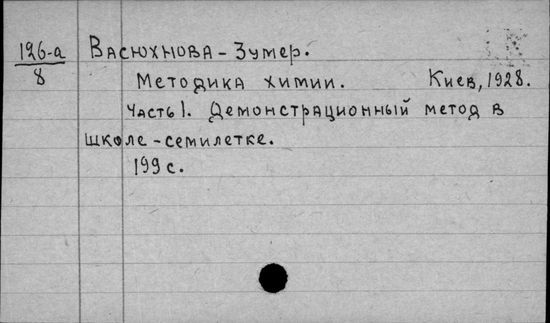 126-а
8
Васюхнова - Зумер.
Методика химии. Киев, 1928.
Часть I. Демонстрационный метод в
школе-семилетке.
199 с.